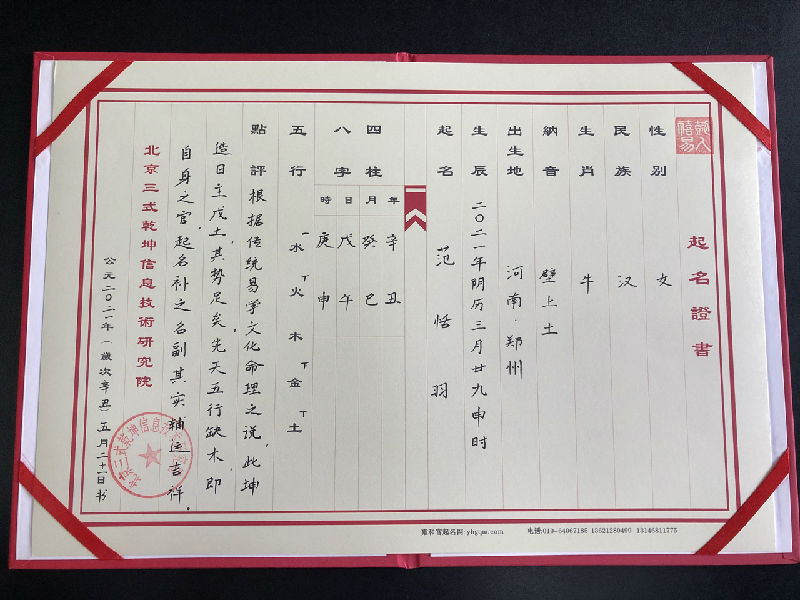 起名證書
性别 女
民族 汉
生肖 牛
納音 壁上土
出生地 河南·郑州
生辰 二〇二一年阴历三月廿九申时
起名 范恬羽
四柱 年 月 日 時
八字 辛丑 癸巳 戊午 庚申
五行 一水 丅火 木 丅金 丅土
點評 根据传统易学文化命理之说，此坤
造日主戊土，其势足矣，先天五行缺木，即
自身之官，起名补之名副其实，辅运吉祥。
北京三式乾坤信息技術研究院
公元二〇二一年（歲次辛丑）五月二十一日书
雍和宫起名网·yhgqm.com 电话:010-64067186 13621280499 13146811775